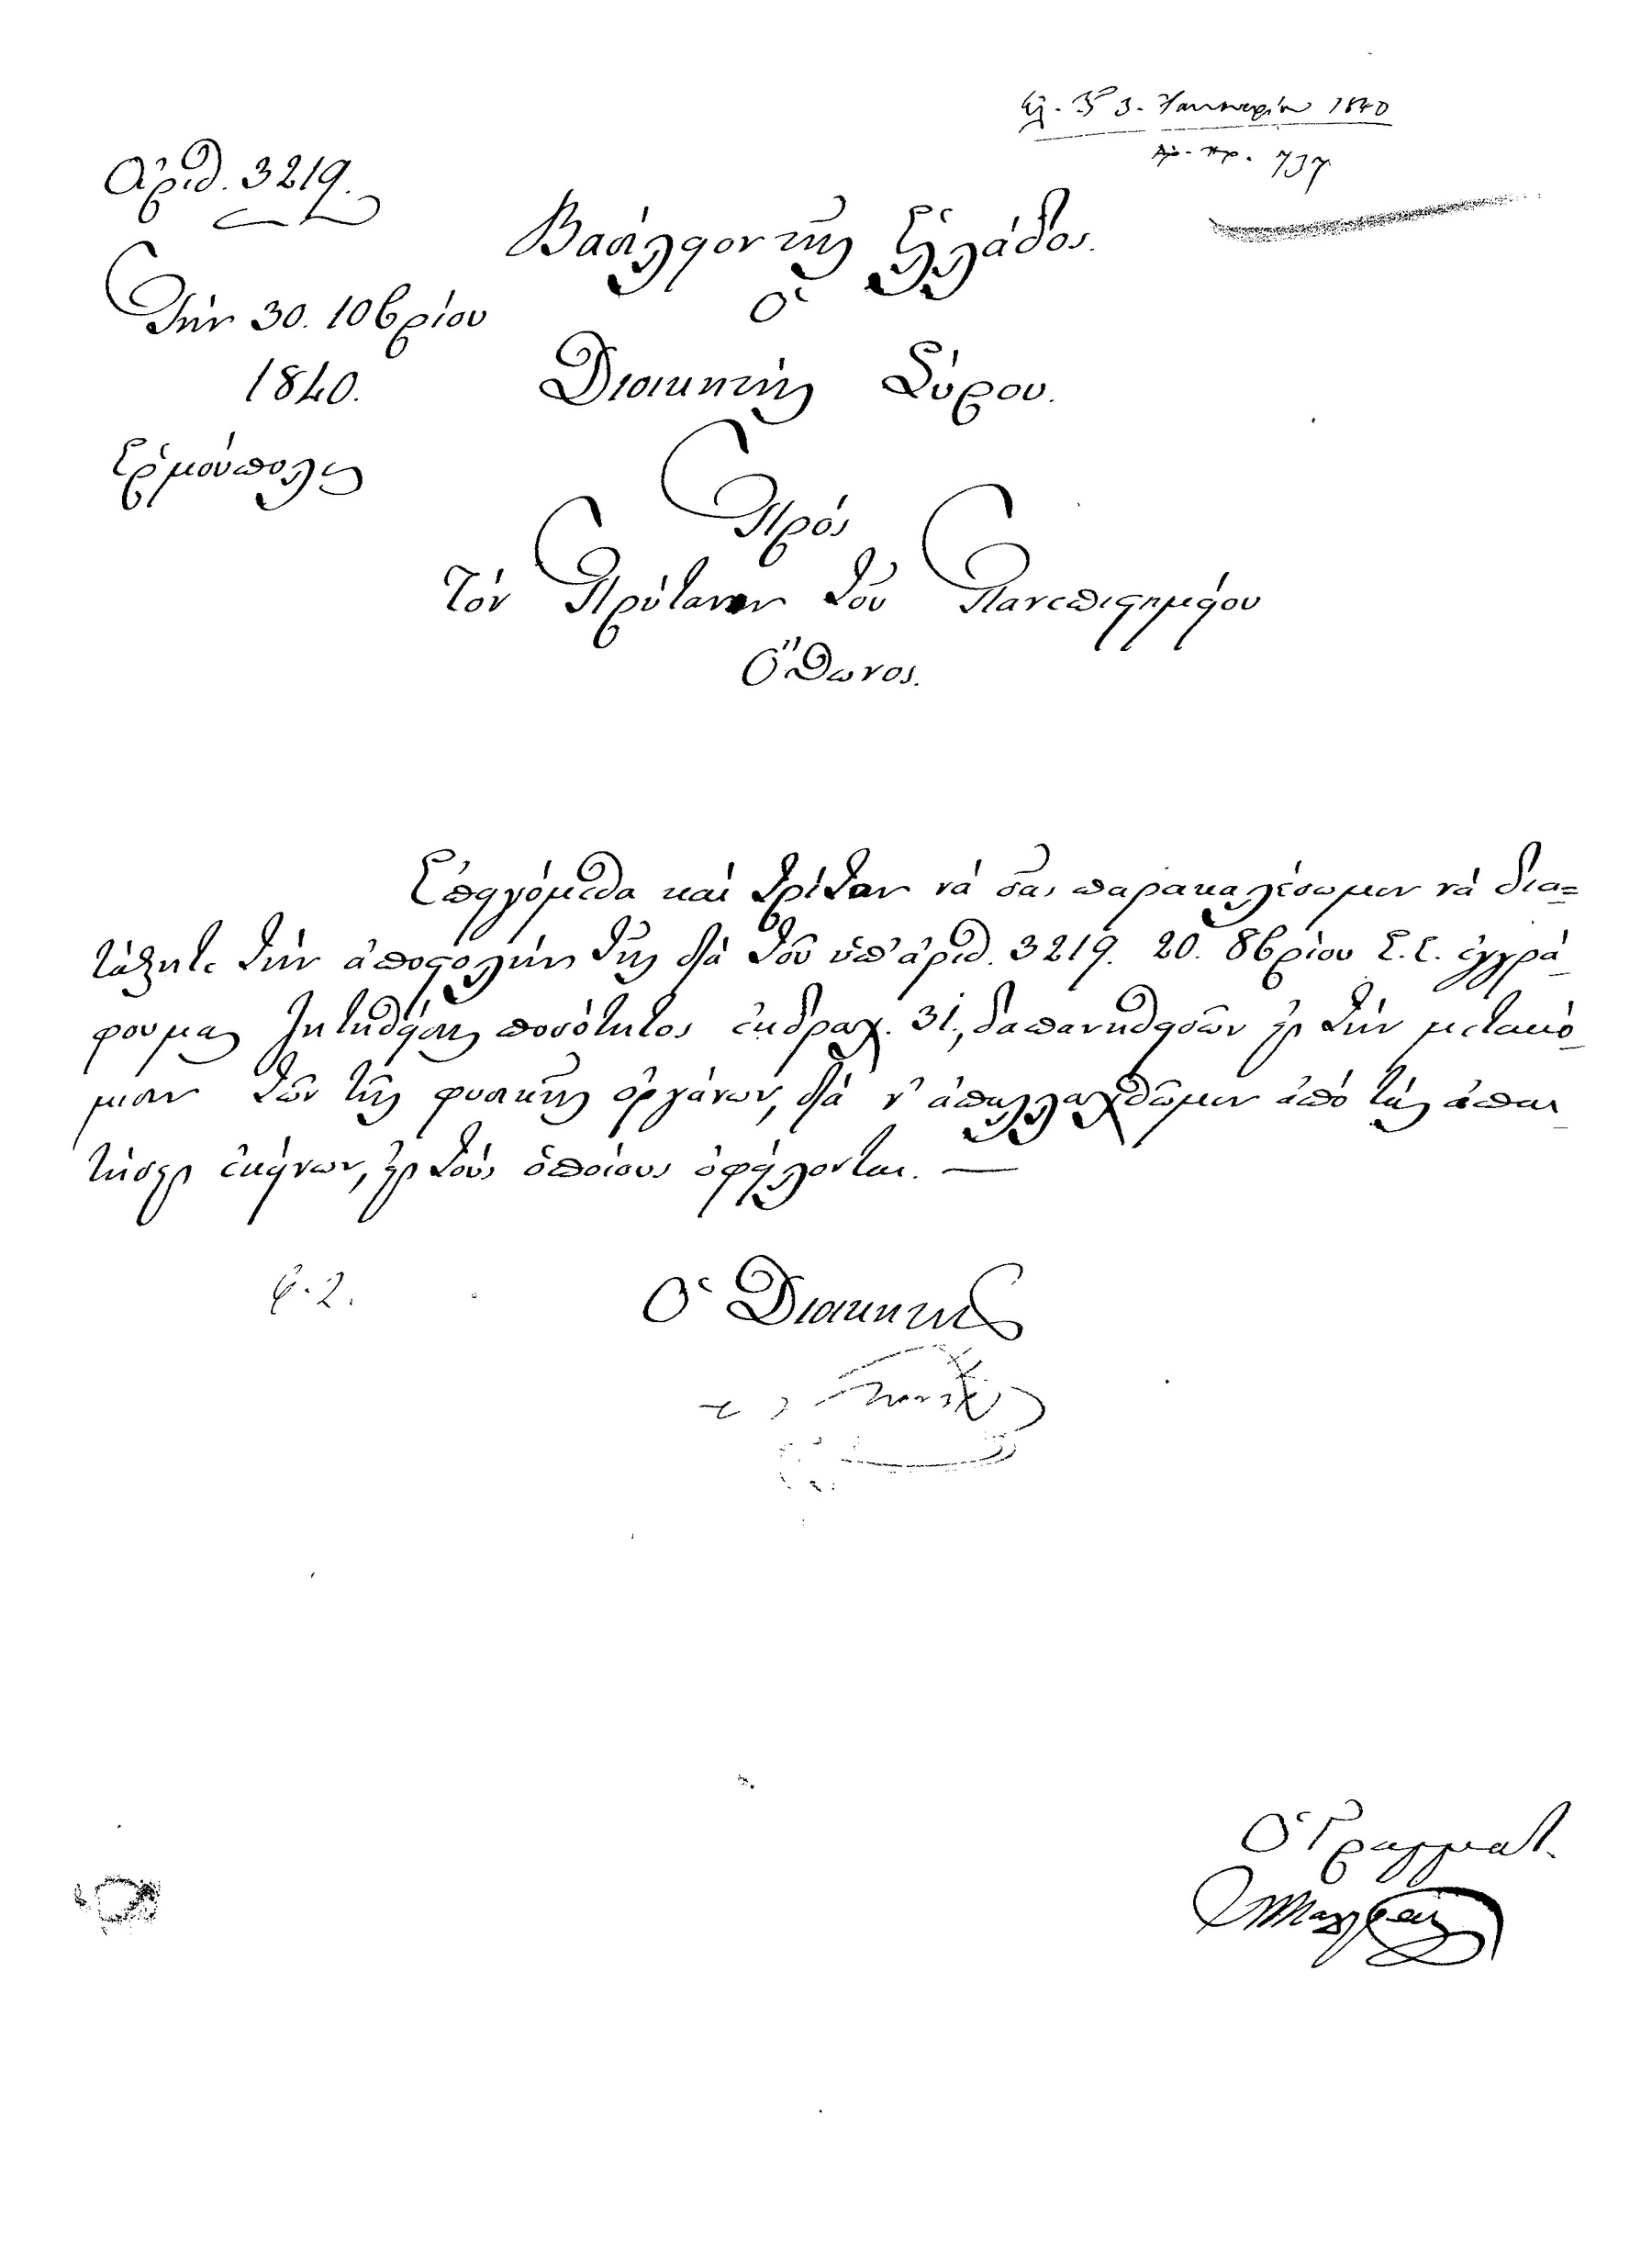 Ἐλ. τῇ 3. Ἰανουαρίου 1840
Ἀρ. πρ. 737
Ἀριθ. 3219.
Βασίλειον τῆς Ἑλλάδος.
Ὁ
Τὴν 30. 10βρίου
1840.
Διοικητὴς Σύρου.
Ἑρμούπολις
Πρὸς
Τὸν Πρύτανιν τοῦ Πανεπιστημείου
Ὄθωνος.
Ἐπειγόμεθα καὶ τρίτον νὰ σᾶς παρακαλέσωμεν νὰ δια=
τάξητε τὴν ἀποστολὴν τῆς διὰ τοῦ ὑπ' ἀριθ. 3219. 20. 8βρίου Ἐ.Ἐ. ἐγγρά_
φου μας ζητηθείσης ποσότητος ἐκ δραχ. 31., δαπανηθεισῶν εἰς τὴν μετακό_
μισιν τῶν τῆς φυσικῆς ὀργάνων, διὰ ν' ἀπαλλαχθῶμεν ἀπὸ τὰς ἀπαι_
τήσεις ἐκείνων, εἰς τοὺς ὁποίους ὀφείλονται. —
Ὁ Διοικητὴς
Ὁ Γραμματ.